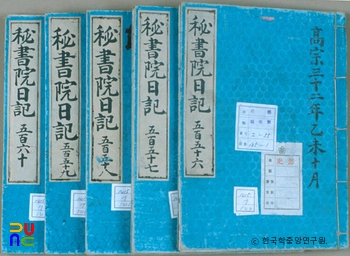 高宗三十二年乙未十月
秘書院日記
五百五十六
秘書院日記
五百五十七
秘書院日記
五百五十八
秘書院日記
五百五十九
秘書院日記
五百六十
© 한국학중앙연구원